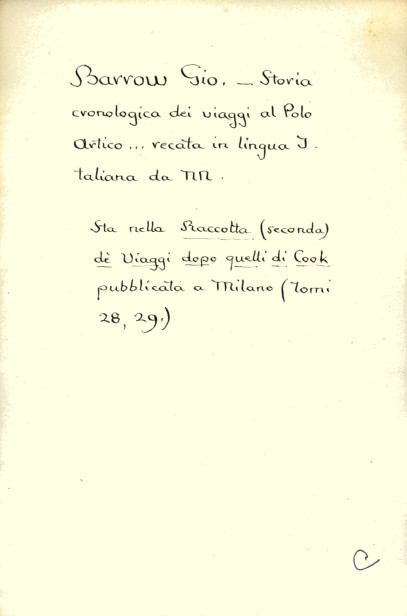 Barrow Gio. — Storia
cronologica dei viaggi al Polo
Artico ... recata in lingua I-
taliana da NN.
Sta nella Raccolta (seconda)
dè Viaggi dopo quelli di Cook
pubblicata a Milano (Tomi
28, 29.)
C